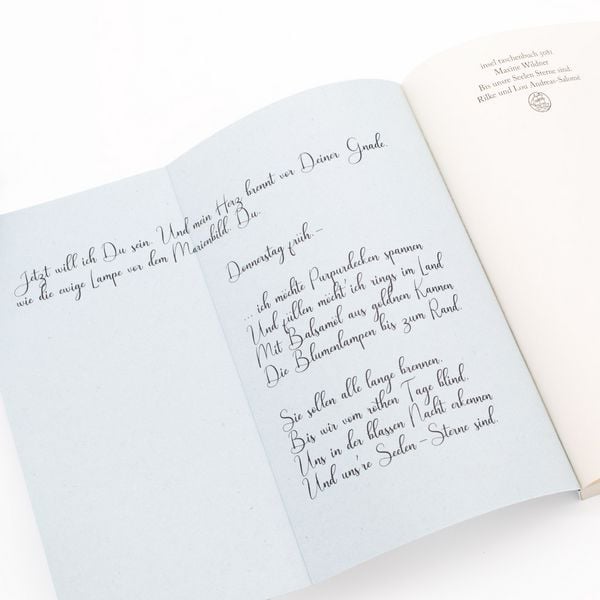 Jetzt will ich Du sein. Und mein Herz brennt vor Deiner Gnade.
wie die ewige Lampe vor dem Marienbild. Du.
Donnerstag früh.–
... ich möchte Purpurdecken spannen
Und füllen möcht ich rings im Land
Mit Balsamöl aus goldnen Kannen
Die Blumenlampen bis zum Rand.
Sie sollen alle lange brennen,
Bis wir vom rothen Tage blind,
Uns in der blassen Nacht erkennen
Und uns're Seelen – Sterne sind.
insel taschenbuch 5081
Maxine Wildner
Bis unsre Seelen Sterne sind.
Rilke und Lou Andreas-Salomé